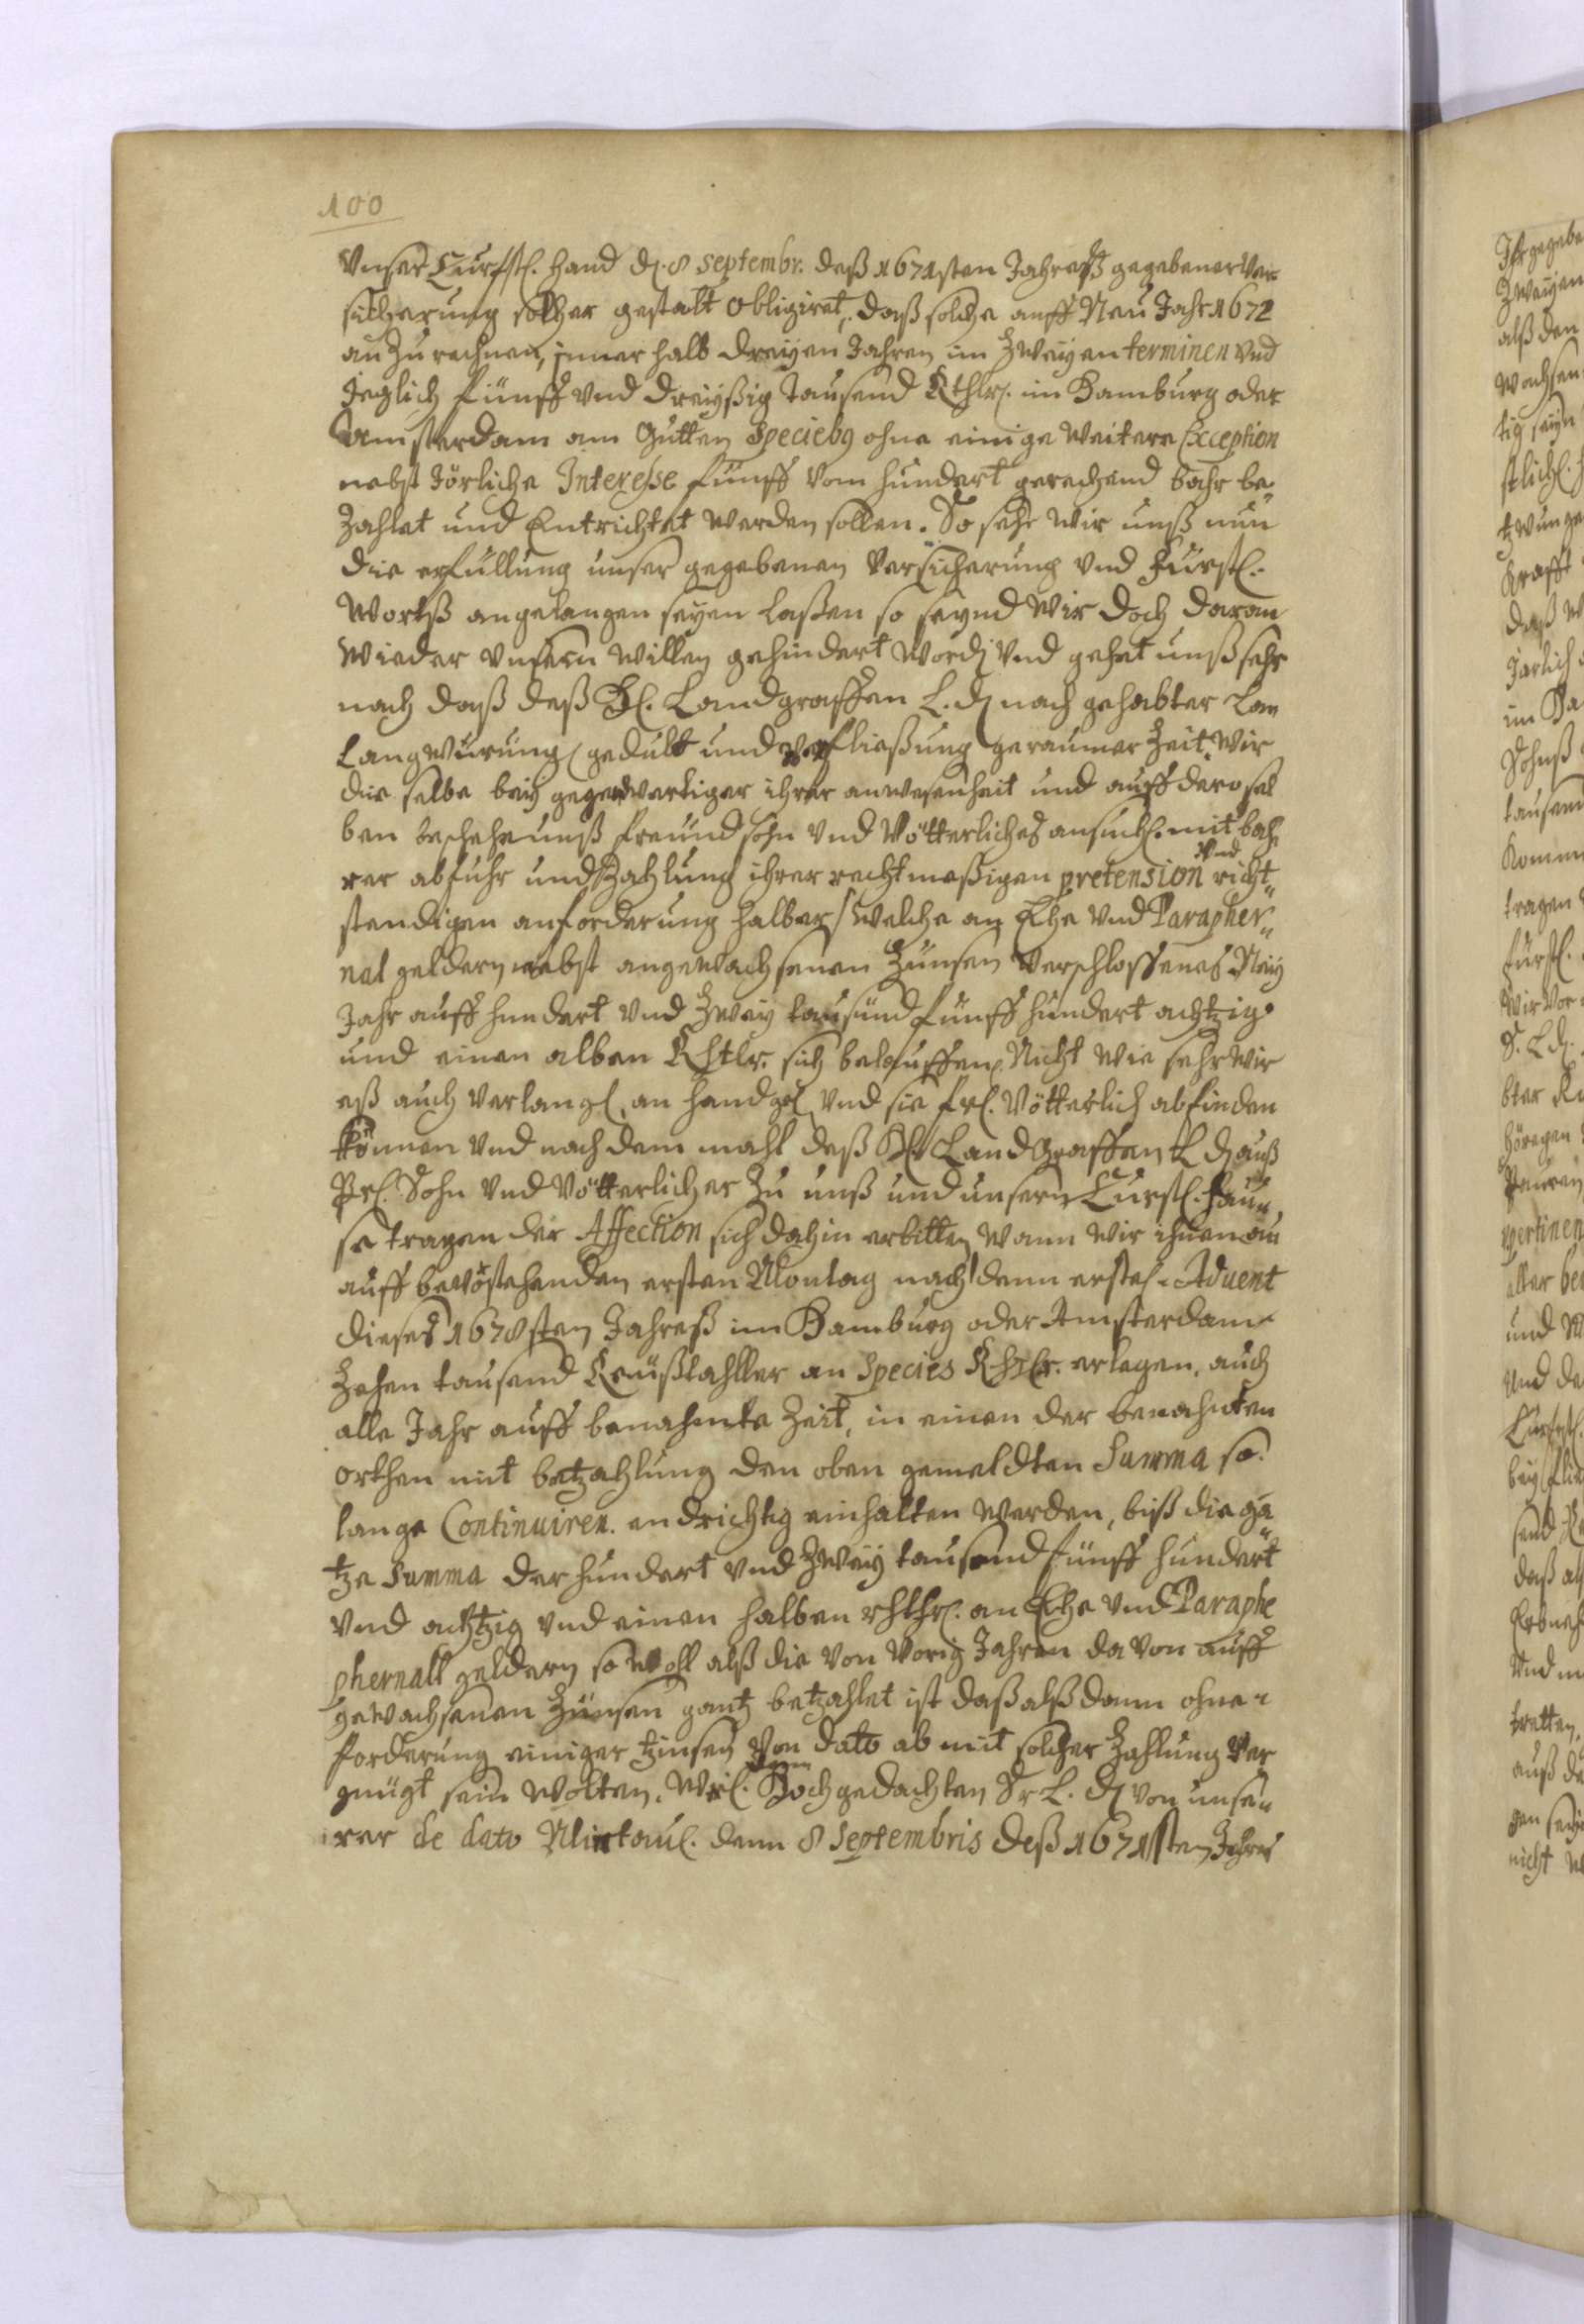 100
Vnser Curfstl. hand d. 8 Septembr. deß 1671sten Jahreß gegebener Ver-
sicherung solcher gestalt obligiret, daß solche auff Neu Jahr 1672
an zu rechnen, inner halb dreyen Jahren im Zweyen terminen vnd
Jeglich fünff vnd dreyßig tausend Rthlr. im Hamburg oder
Amsterdam am Gutten Specieb9 ohne einige Weitere Exception
nebst Jörliche Interesse fünff vom hundert gerechend bahr be-
Zahlet und Entrichtet werden sollen. So sehr wir unß nun
die erfüllung unser gegebenen Versicherung vnd Fürstl.
Wortß angelangen seyen laßen so seynd wir doch daran
Wieder Vnsern willen gehindert word. vnd gehet unß sehr
nach daß deß H. Landgraffen L. d. nach gehabter Lan
Langwürung gedult und verfließung geraumer Zeit, wir
die selbe bey gegenwertiger ihrer anwesenheit und auff dero sel
ben bescheheneß freund Sohn vnd Vötterliches ansuch. mit bah
rer abfuhr und Zahlung ihrer rechtmeßigen pretension Vnd richt"
stendigen anforderung halber / welche an Ehe vnd Parapher"
nal geldern nebst angewachsenen Zünsen verschlossenes Ney
Jahr auff hundert vnd Zwey tausünd fünff hundert achtzig
und einen alben Rhtlr. sich belauffen, Nicht wie sehr wir
eß auch verlang., an hand g. vnd sie frl. Vötterlich abfinden
können vnd nach dem mahl deß H. Land Graffen L. d. auß
Frl. Sohn vnd Vötterlicher Zu unß und unsern Curstl. Hau"
se tragen der Affection sich dahin erbitten, wann wir ihnen an
auff bevörstehenden ersten Montag nach denn erstel. Advent
dieses 1678sten Jahreß im Hamburg oder Amsterdam
Zehen tausend Reußtahller an Species Rhtlr. erlegen, auch
alle Jahr auff benahmte Zeit, in einen der benahnten
orthen mit betzahlung den oben gemeldten Summa so
lange Continuiren. en drichtig einhalten werden, biß die ga"
tze Summa der hundert vnd Zwey tausend fünff hundert
vnd achtzig vnd einen halben rhthr. an Ehe vnd Paraphe
phernall geldern so woll alß die von Vorig Jahren da von auff
gewachsenen Zünsen gantz betzahlet ist daß alß dann ohne
forderung einiger tzinsen Von dato ab mit solcher Zahlung Ver
gnügt sein wolten. Hochgedachten Sr L. d. von unse"
rer de dato Mintau. denn 8 Septembris deß 1671sten Jahres